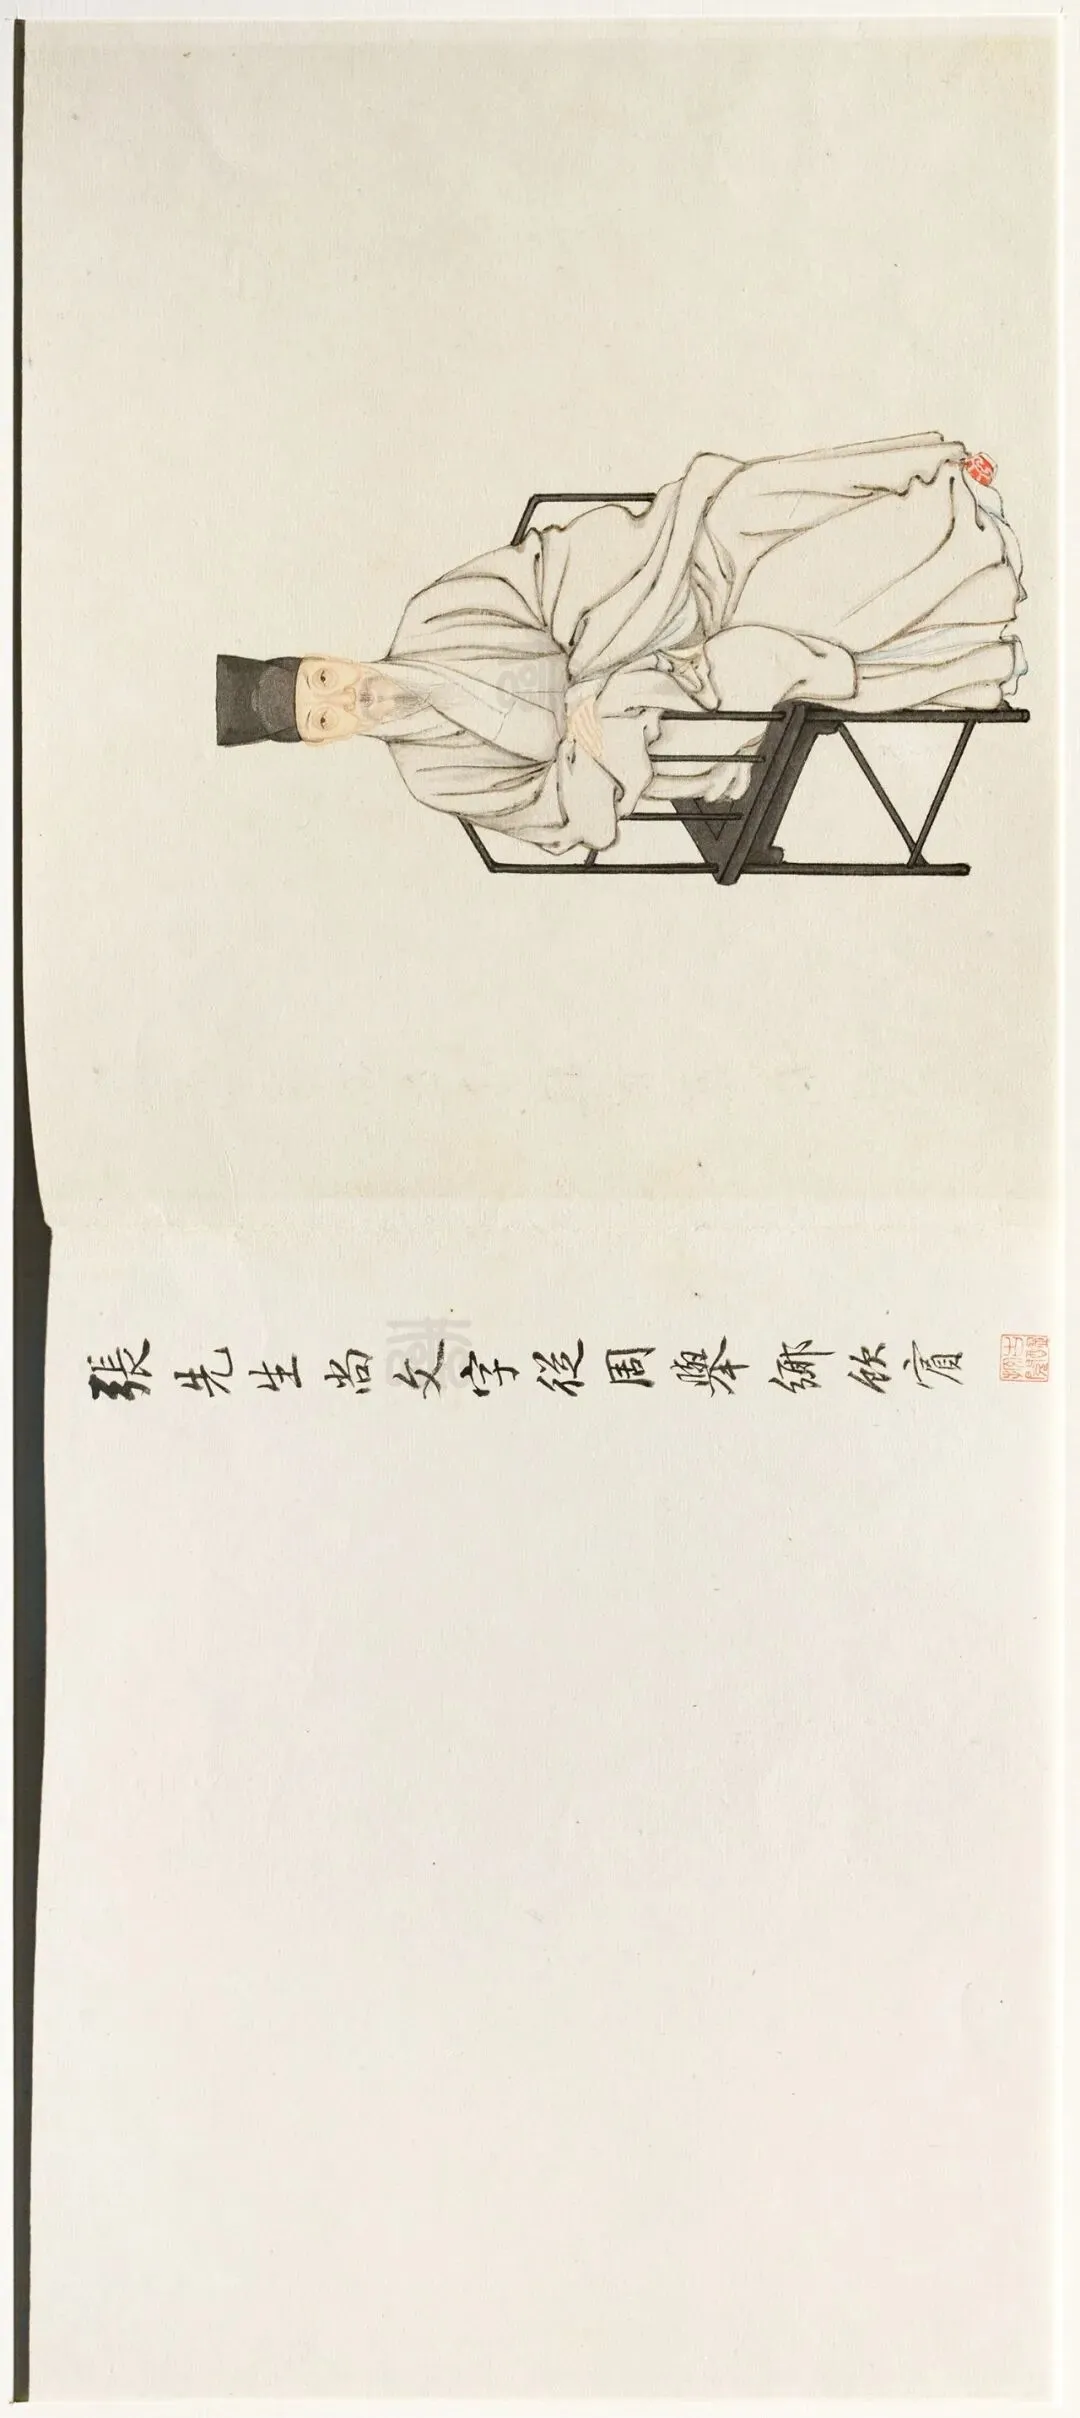 張先生尚文字從周舉鄉飲賓